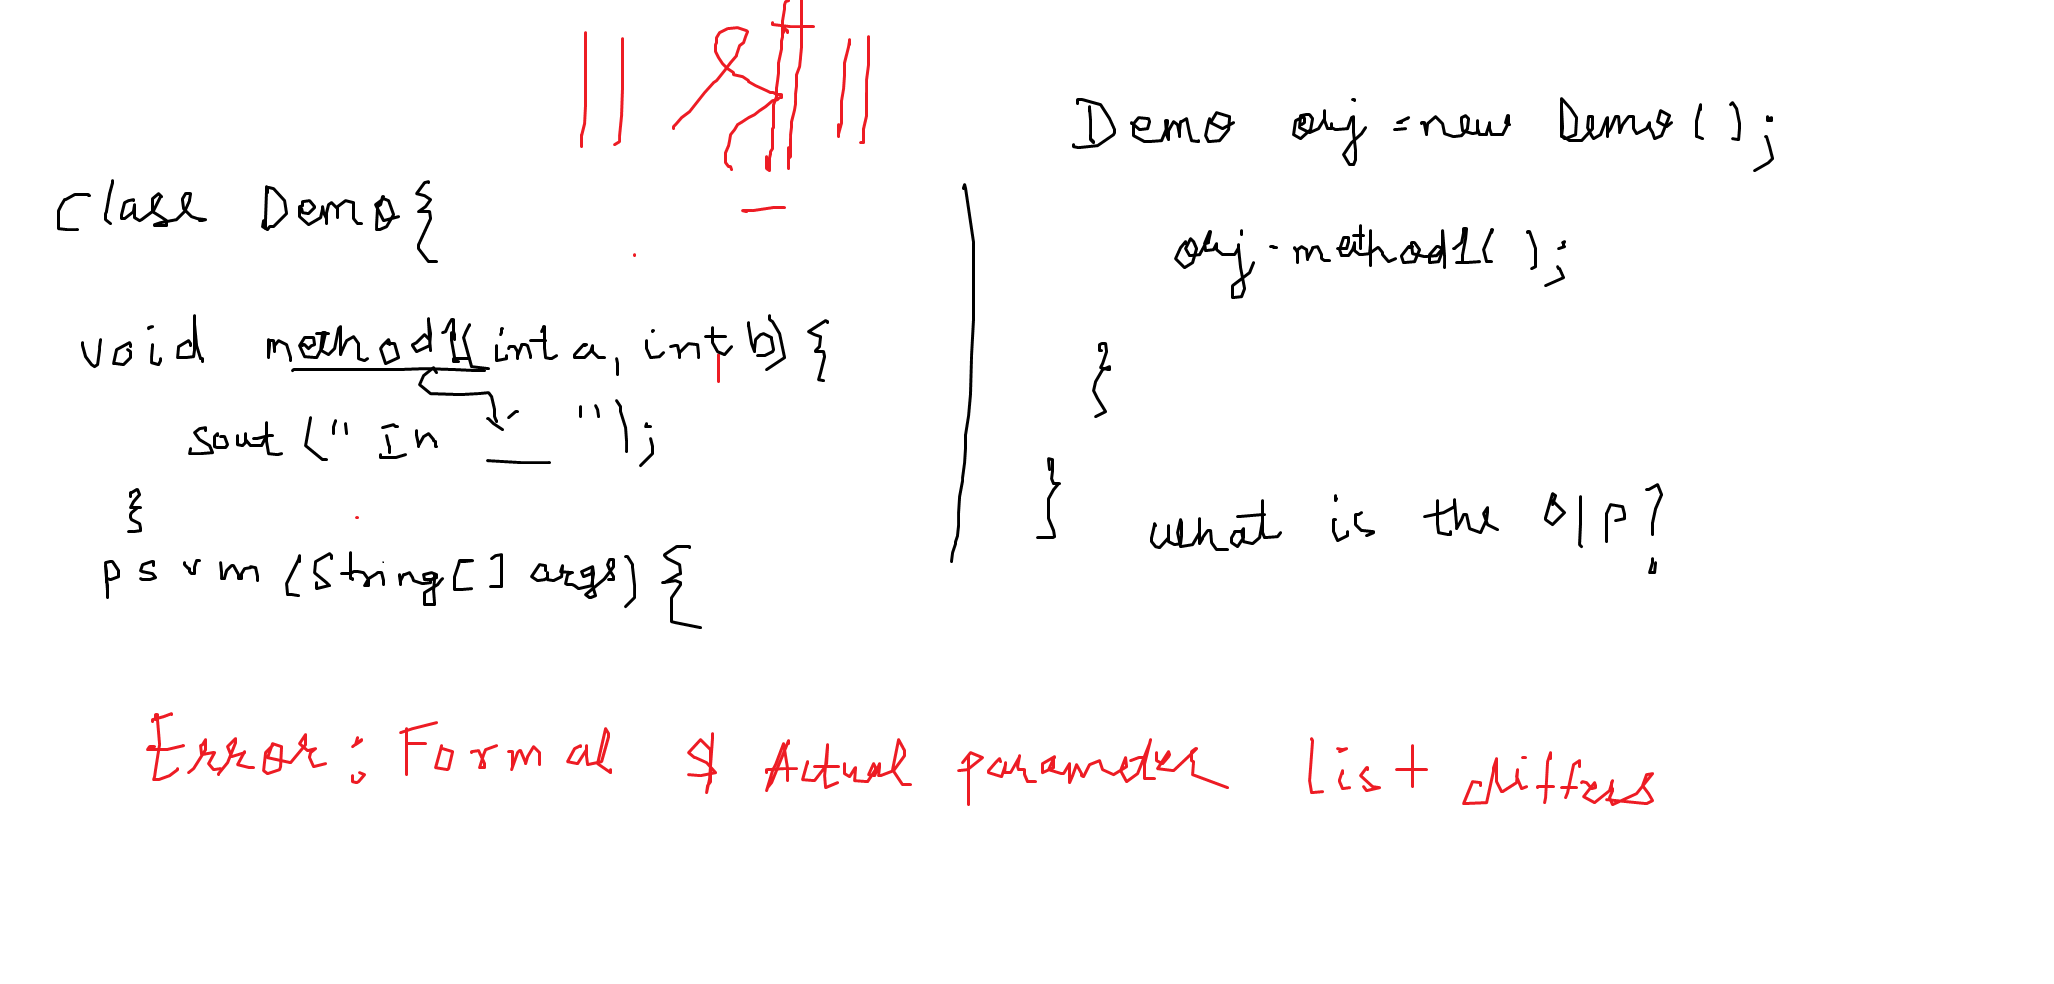 || श्री ||
class Demo{
void method1(int a, int b) {
sout (" In __ ");
}
psvm (String[] args) {
Demo obj = new Demo();
obj.method1( );
}
}
what is the O|P?
Error: Formal & Actual parameter list differs